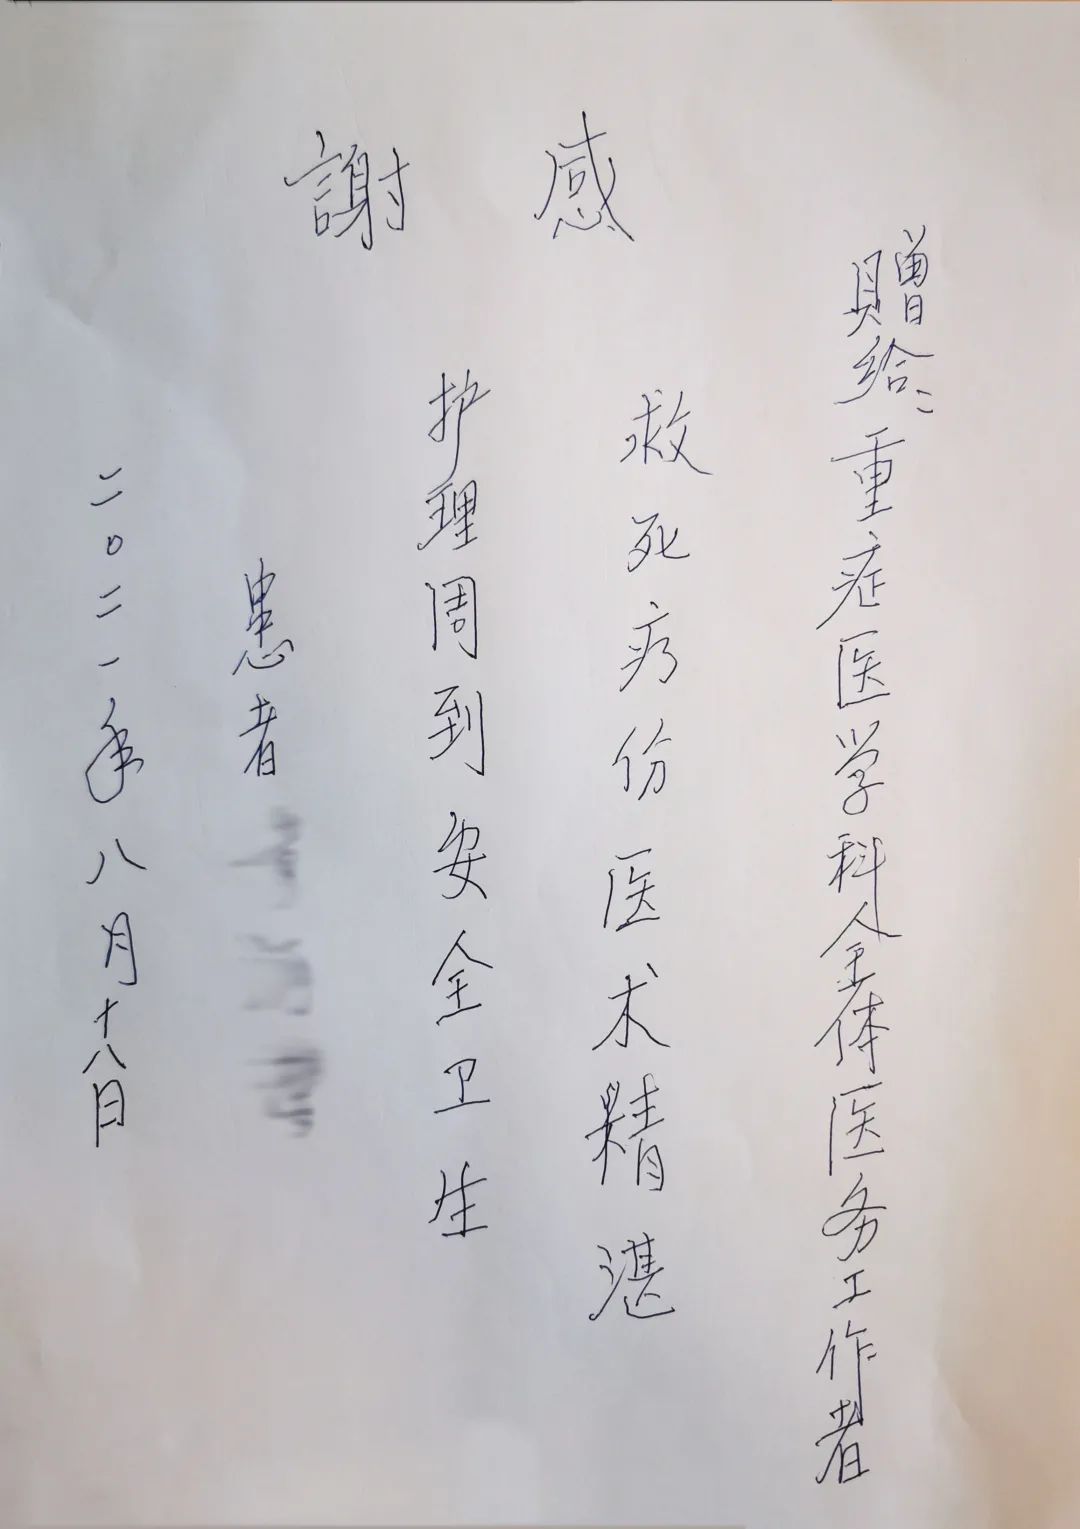 感謝
贈给：重症医学科全体医务工作者
救死疗份医术精湛
护理周到安全卫生
患者
二〇二一年八月十八日